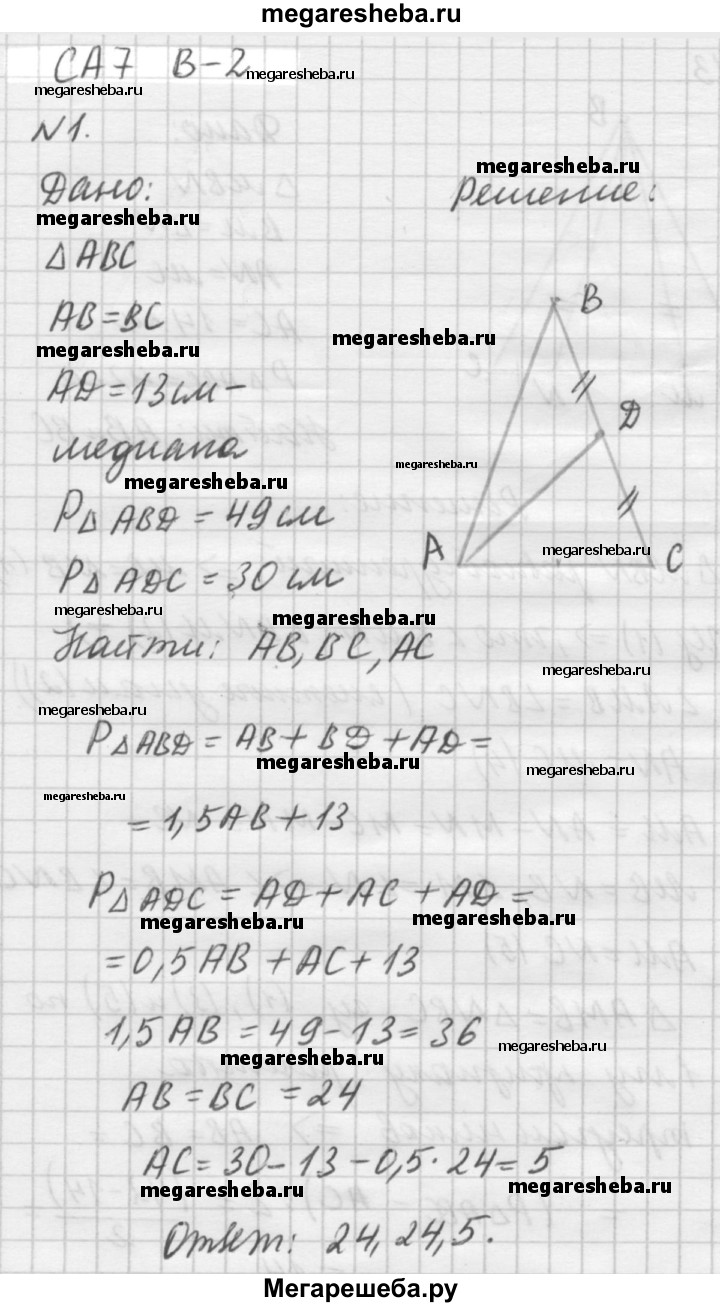 megaresheba.ru
СА7 В-2
megaresheba.ru
megaresheba.ru
№1.
megaresheba.ru
Дано:
Решение:
megaresheba.ru
Δ ABC
AB=BC
megaresheba.ru
megaresheba.ru
AD=13см-
медиана
megaresheba.ru
megaresheba.ru
B
D
A
C
PΔ ABD = 49 см
megaresheba.ru
PΔ ADC = 30 см
megaresheba.ru
megaresheba.ru
Найти: AB, BC, AC
megaresheba.ru
megaresheba.ru
PΔABD = AB+BD+AD=
megaresheba.ru
megaresheba.ru
megaresheba.ru
=1,5AB+13
PΔADC = AD+AC+AD=
megaresheba.ru
megaresheba.ru
=0,5AB+AC+13
1,5AB=49-13=36
megaresheba.ru
megaresheba.ru
AB=BC=24
AC=30-13-0,5·24=5
megaresheba.ru
megaresheba.ru
Ответ: 24, 24, 5.
Мегарешеба.ру